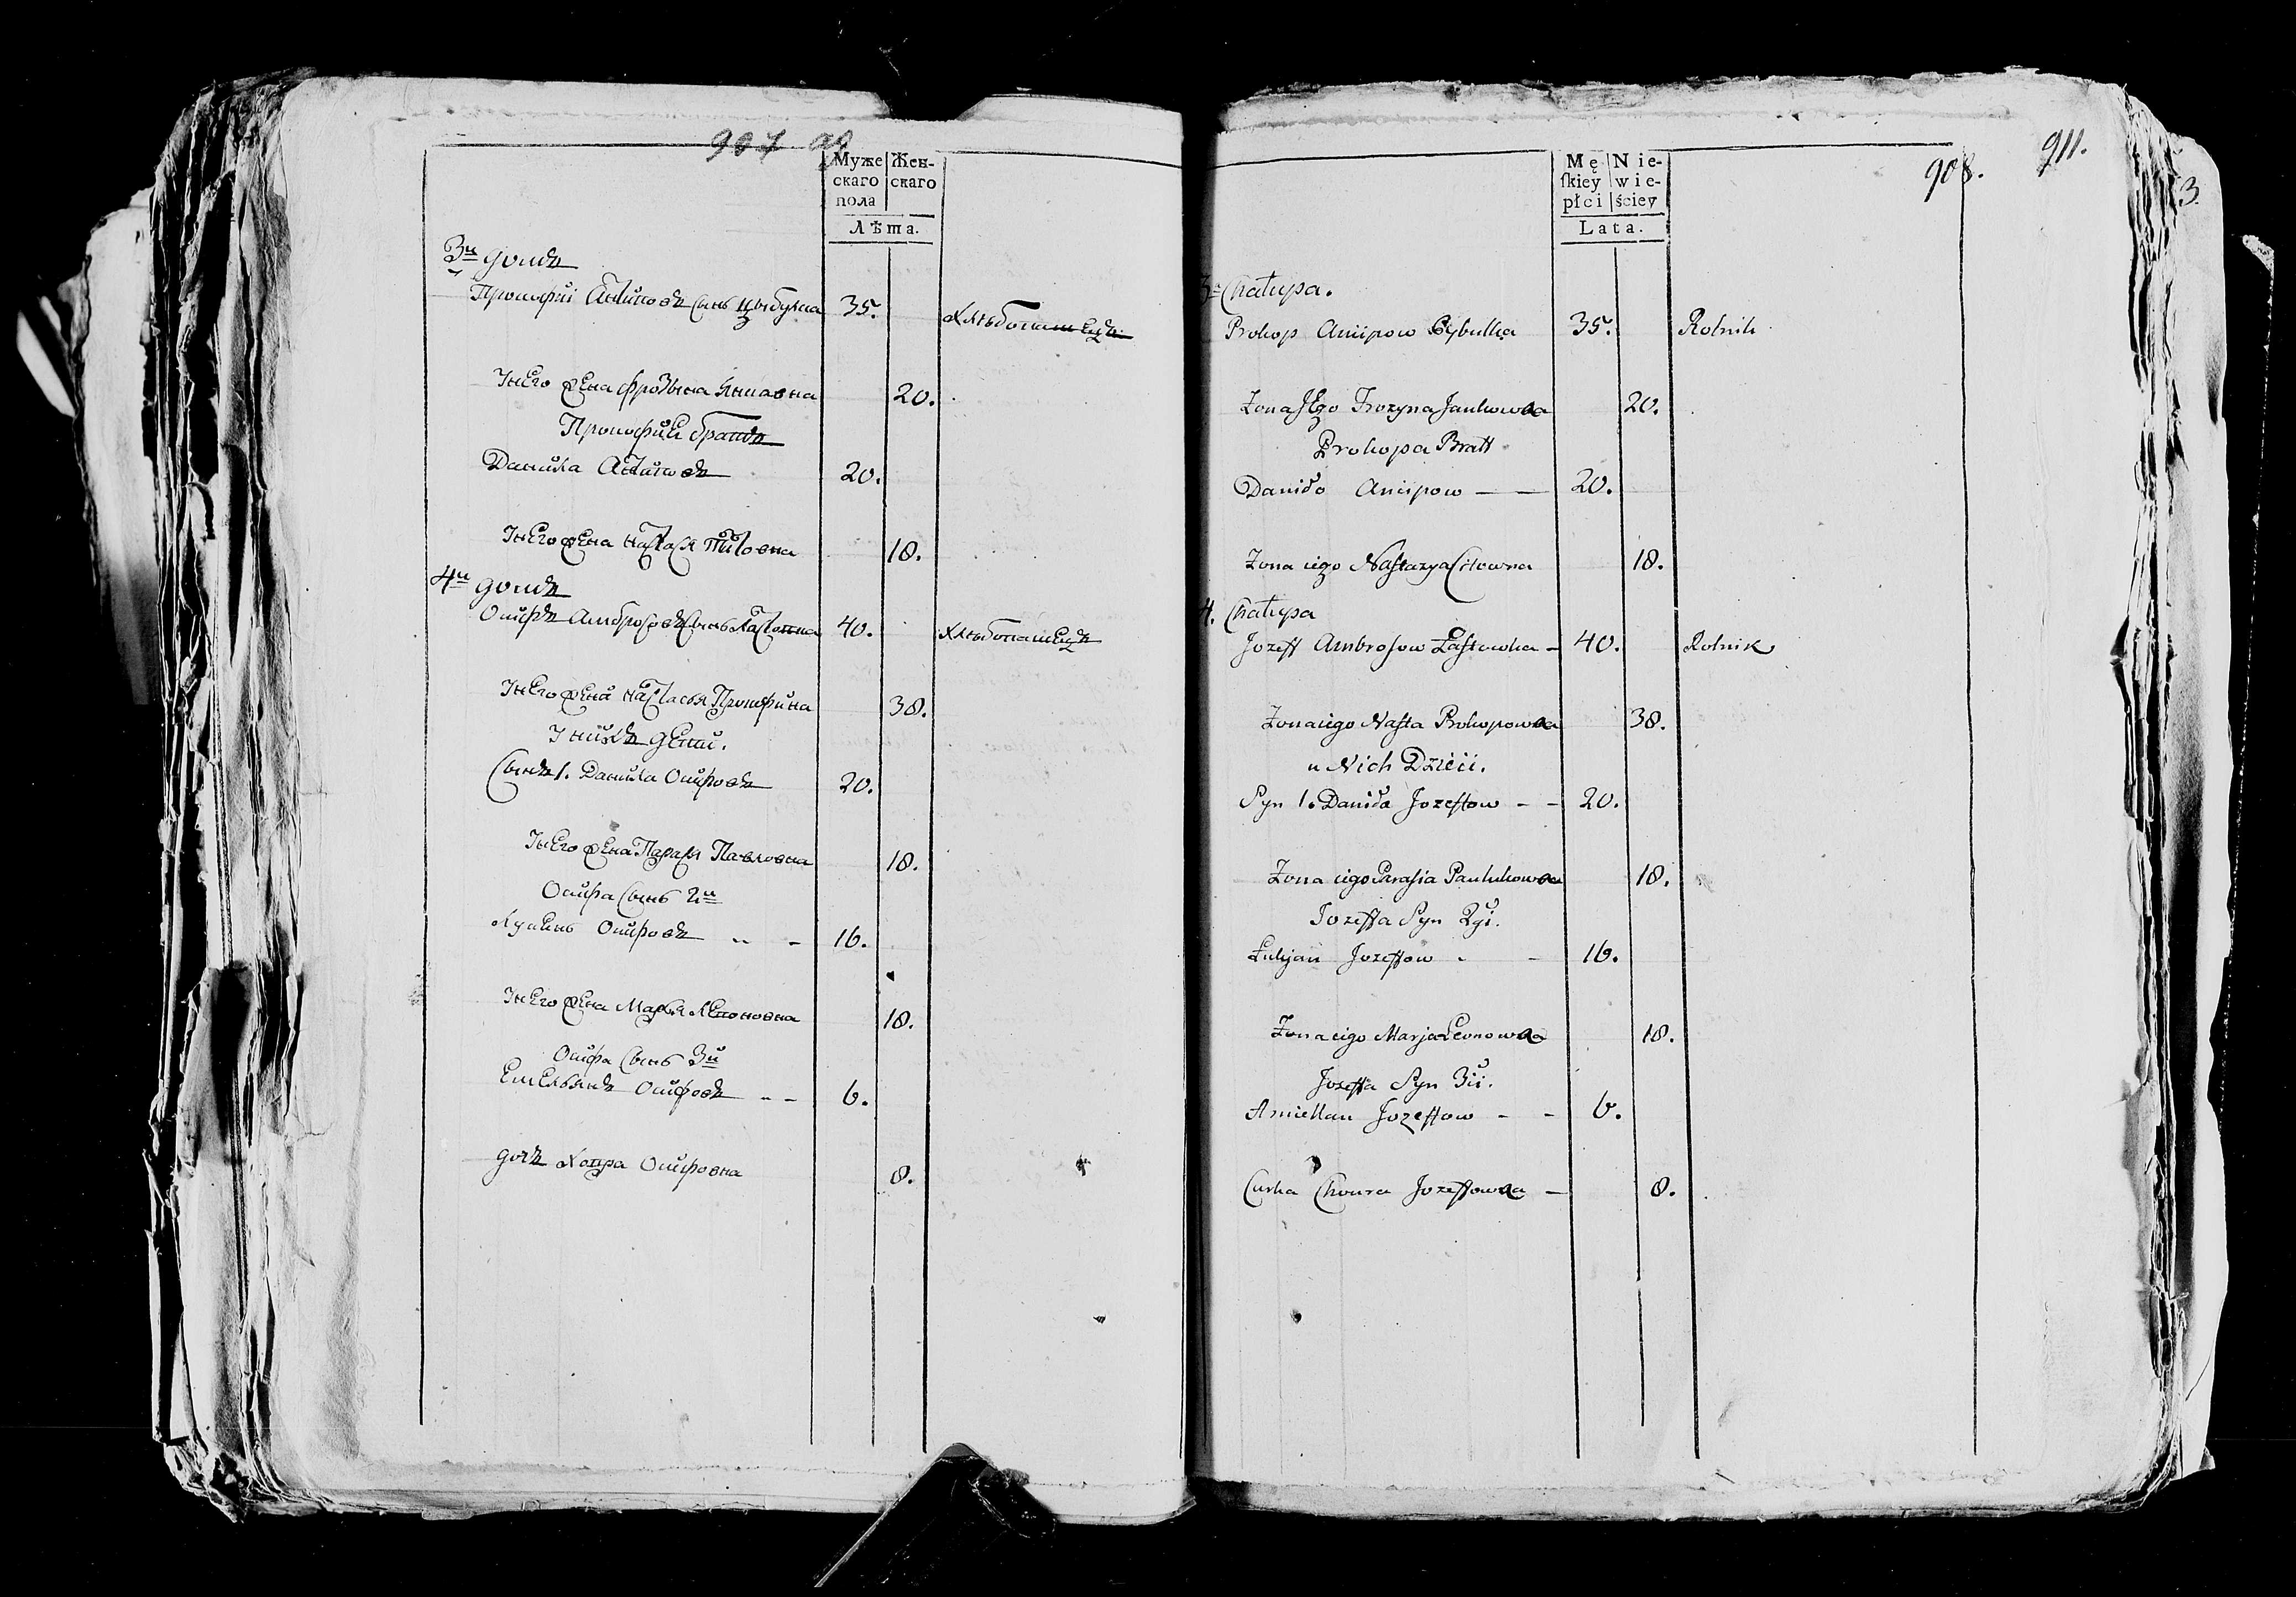 907 об
Муже Жен-
скаго скаго
пола
Лѣта.
3й домъ
Прокофїй Антиповъ сынъ Цыбулка 35. Хлѣбопашецъ
У него жена Фрозына Янковна 20.
Прокофія братъ
Данила Антиповъ 20.
У него жена Настася Титовна 18.
4й домъ
Осифъ Амбросовъ сынъ Ластовка 40. Хлѣбопашецъ
У него жена Настасья Прокофина 38.
У нихъ дети.
Сынъ 1. Данила Осифовъ 20.
У него жена Парася Павловна 18.
Осифа сынъ 2й
Лукянъ Осифовъ 16.
У него жена Марья Леоновна 18.
Осифа сынъ 3й
Емельянъ Осифовъ 6.
дочь Хопра Осифовна 8.
908. 911.
3
Mę Nie-
ſkiey wie-
płci ściey
Lata.
3a Chałupa.
Prokop Anćipow Cybulka 35. Rolnik
Żona Jego Frozyna Jankowna 20.
Prokopa Bratt
Daniło Anćipow 20.
Żona iego Naſtazya Citowna 18.
4. Chałupa
Jozeff Ambroſow Łaſtowka 40. Rolnik
Żona iego Naſta Prokopowna 38.
u Nich Dzieci.
Syn 1. Daniła Jozeffow 20.
Żona iego Paraſia Pawlukowna 18.
Jozeffa Syn 2gi.
Łukjan Jozeffow 16.
Żona iego Marja Leonowna 18.
Jozeffa Syn 3ci.
Amiellan Jozeffow 6.
Curka Chowra Jozeffowna 8.